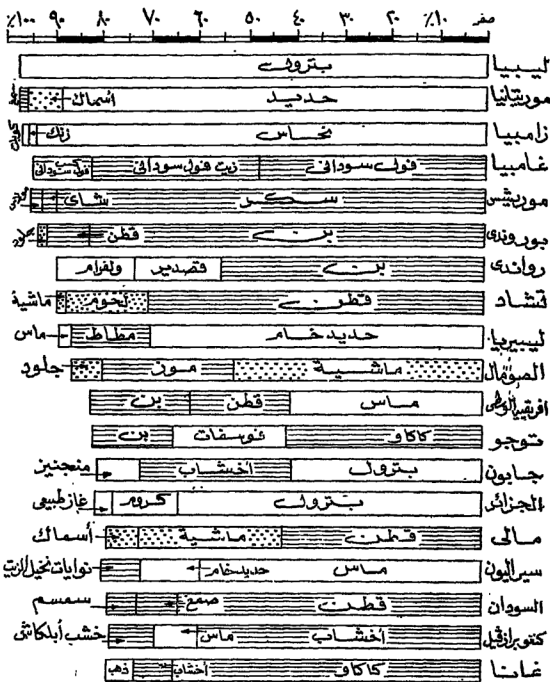 صفر ١٠٪ ٢٠ ٣٠ ٤٠ ٥٠ ٦٠ ٧٠ ٨٠ ٩٠ ١٠٠٪
ليبيا بترول
موريتانيا حديد أسماك
زامبيا نحاس زنك
غامبيا فول سوداني زيت فول سوداني كسب فول سوداني
موريشس سكر شاى
بوروندى بن قطن جلود
رواندى بن قصدير ولفرام
تشاد قطن لحوم ماشية
ليبيريا حديد خام مطاط ماس
الصومال ماشية موز جلود
افريقيا الوسطى ماس قطن بن
توجو كاكاو فوسفات بن
جابون بترول أخشاب منجنيز
الجزائر بترول كروم غاز طبيعى
مالى قطن ماشية أسماك
سيراليون ماس حديد خام نوايات نخيل الزيت
السودان قطن صمغ سمسم
كنغو برازفيل أخشاب ماس خشب أبلكاش
غانا كاكاو أخشاب ذهب